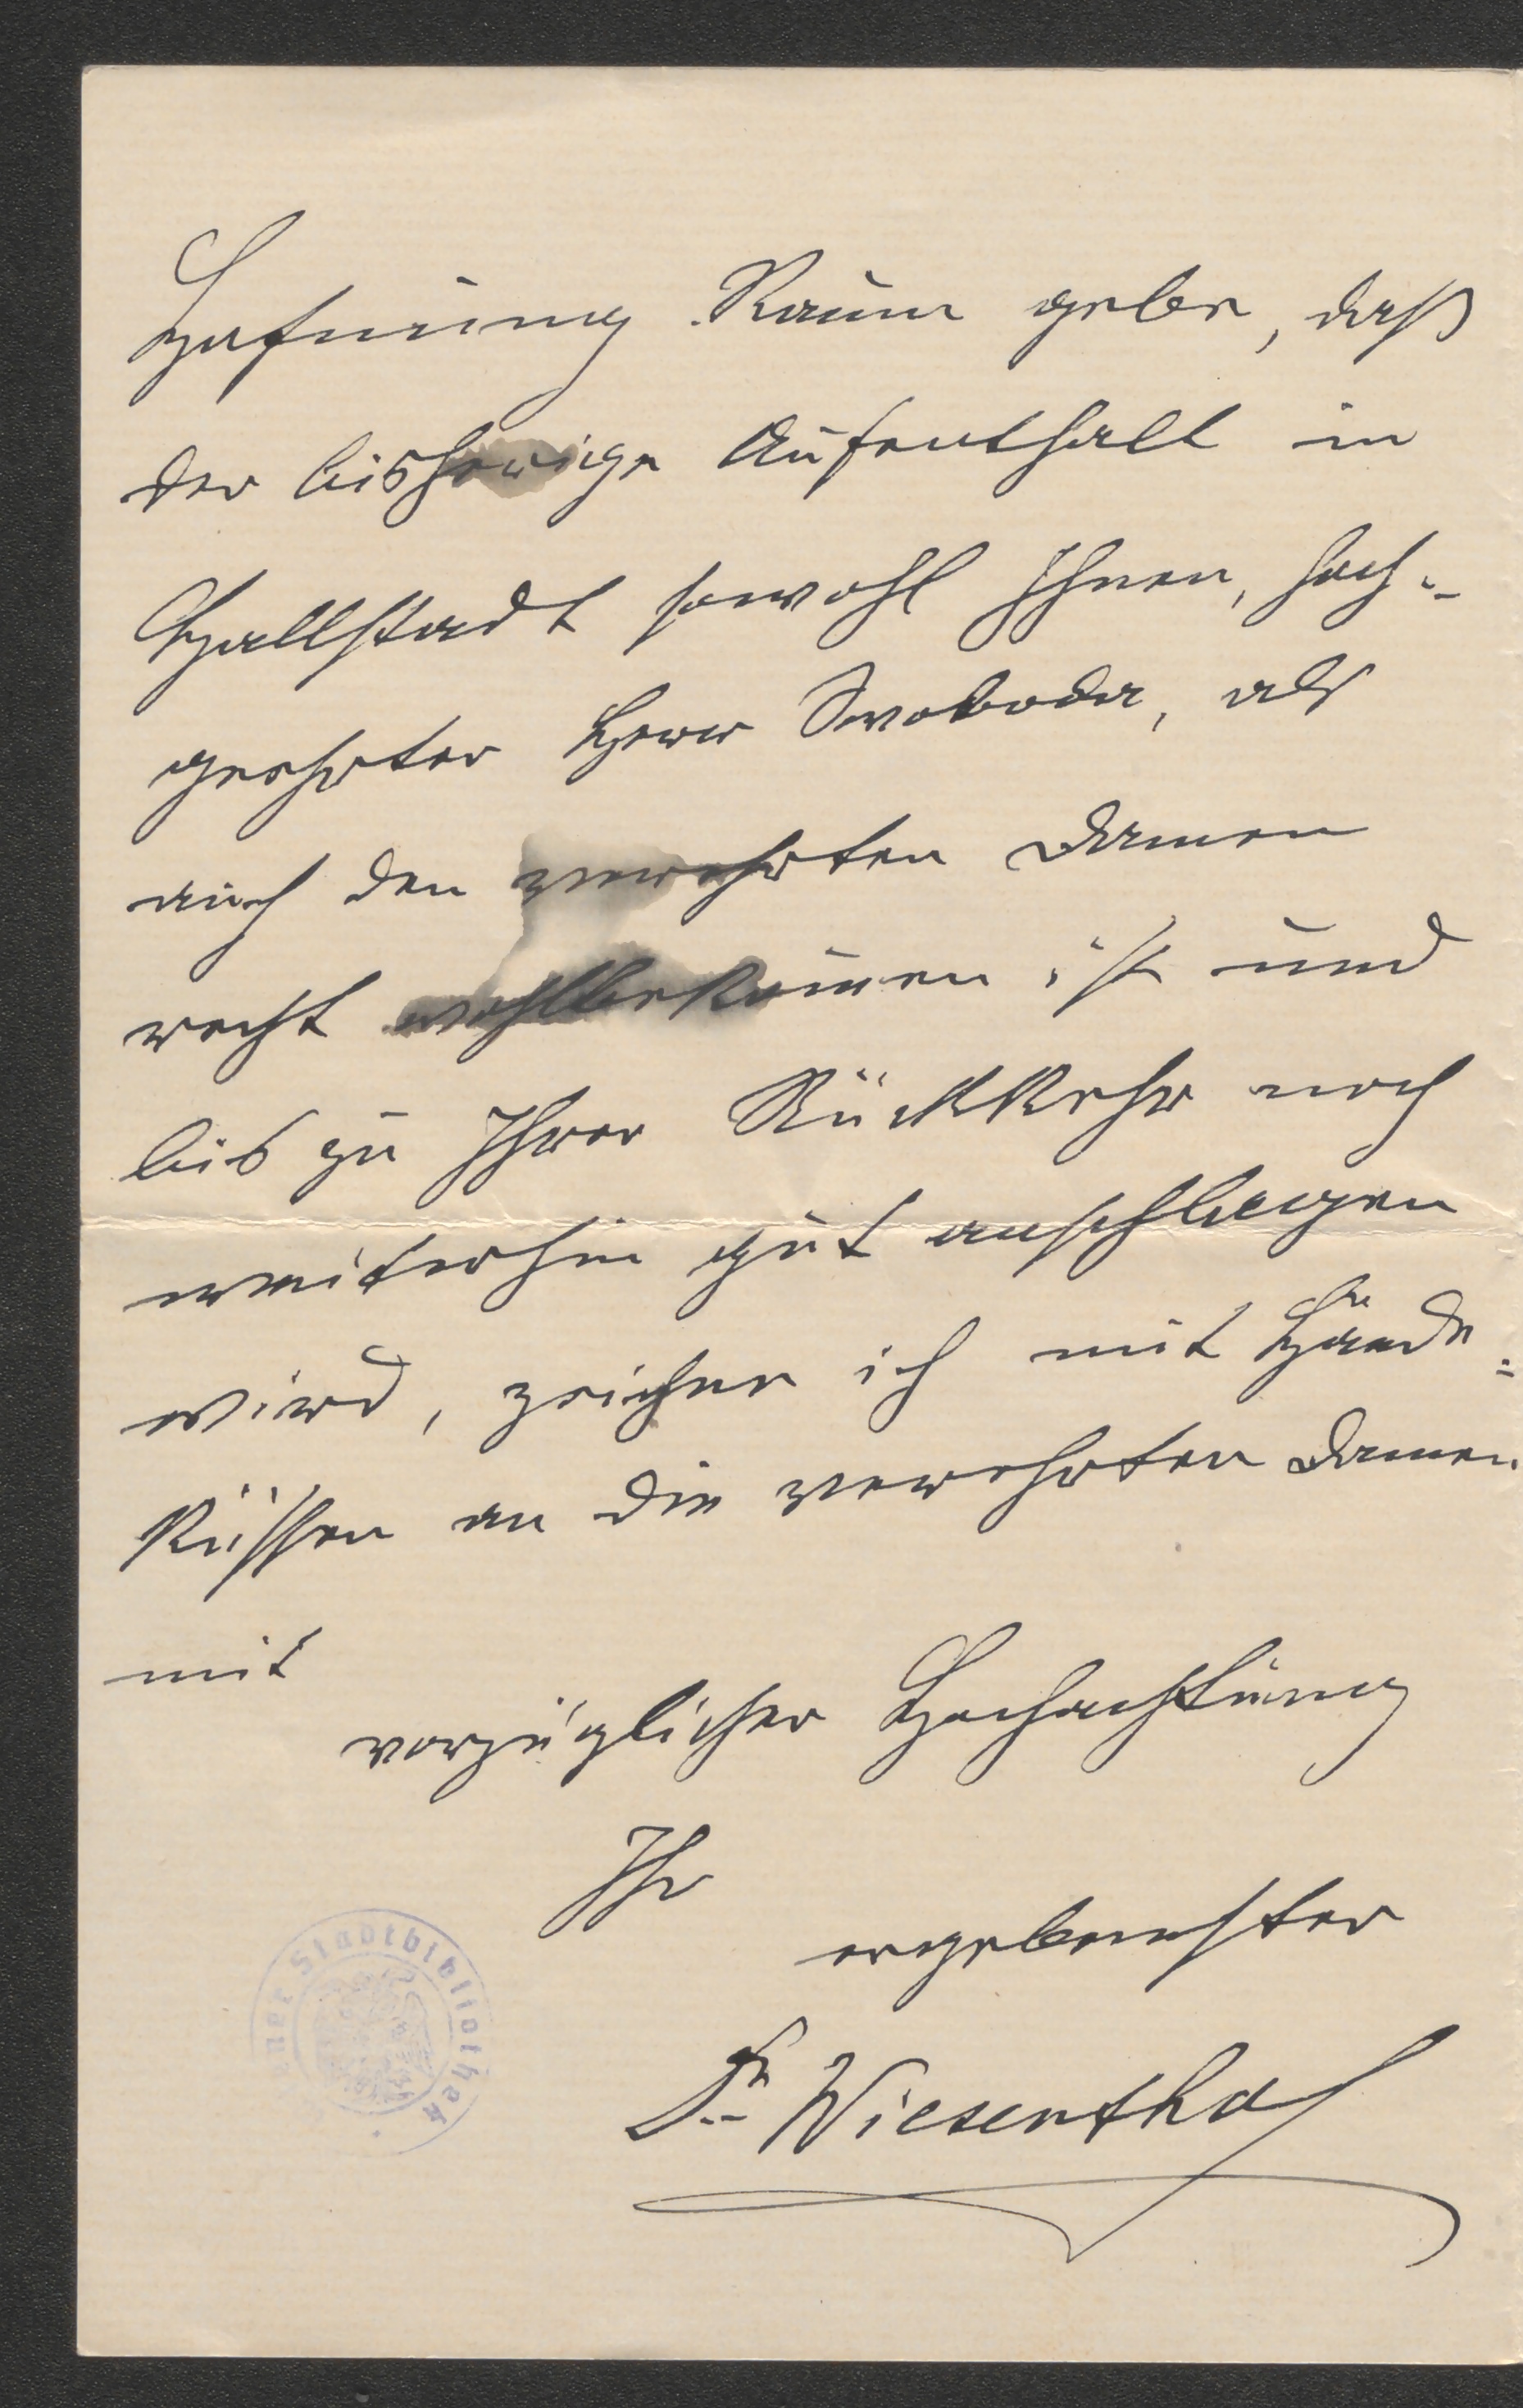 Hofnung Raum gebe, daß
der bisherige Aufenthalt in
Hallstadt sowohl Ihnen, hoch-
geehrter Herr Swoboda, als
auch den verehrten Damen
recht wohlbekom̅en ist und
bis zu Ihrer Rückkehr noch
weiterhin gut anschlagen
wird, zeichne ich mit Hände-
küssen an die verehrten Damen
mit
vorzüglicher Hochachtung
Ihr
ergebenster
Dr Wiesenthal
Wiener Stadtbibliothek